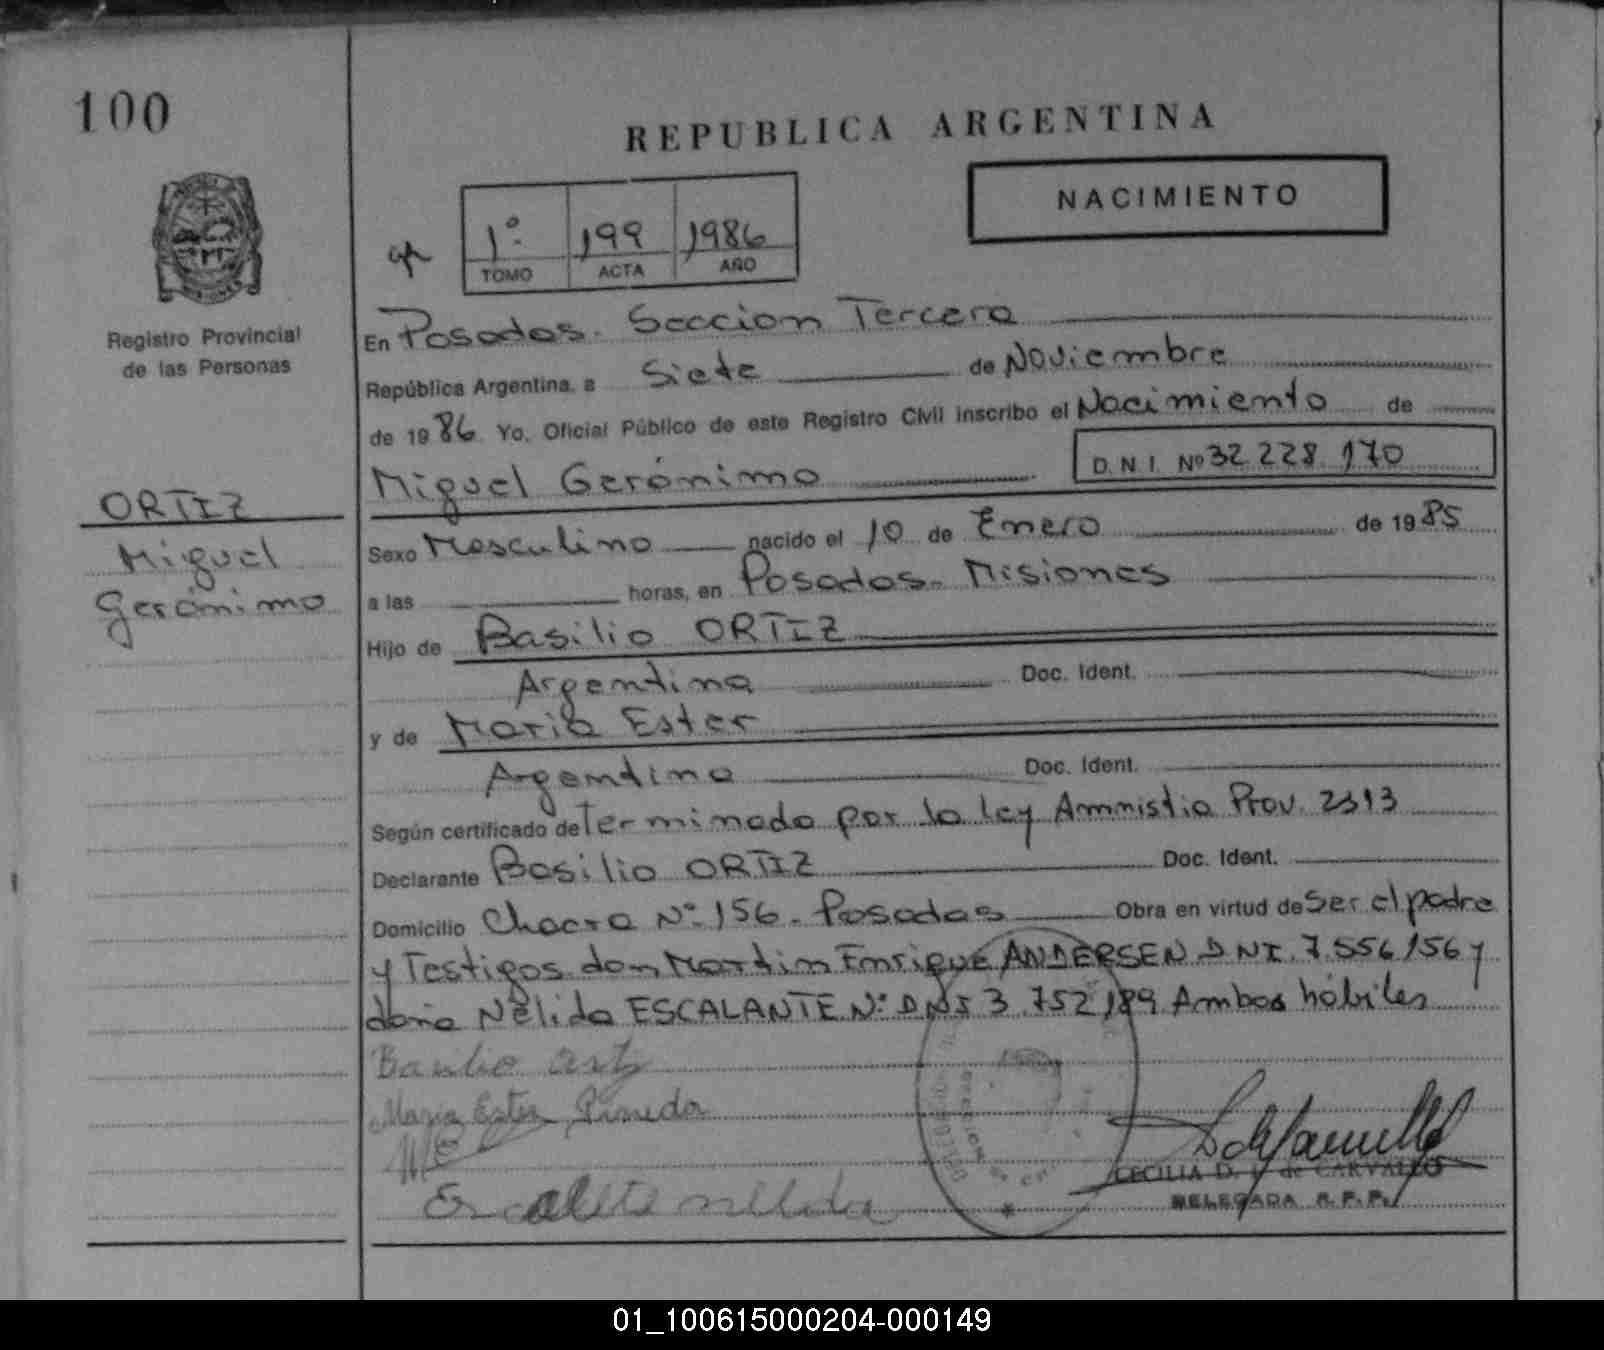 100
REPUBLICA ARGENTINA
NACIMIENTO
1º 199 1986
TOMO ACTA AÑO
Registro Provincial
de las Personas
ORTIZ
Miguel
Gerónimo
En Posadas. Seccion Tercera
República Argentina, a Siete de Noviembre
de 1986. Yo, Oficial Público de este Registro Civil inscribo el Nacimiento de
Miguel Gerónimo D.N.I. Nº 32 228 170
Sexo Masculino nacido el 10 de Enero de 1985
a las horas, en Posadas. Misiones
Hijo de Basilio ORTIZ
Argentina Doc. Ident.
y de Maria Ester
Argentina Doc. Ident.
Según certificado de Terminado por la ley Amnistia Prov. 2313
Declarante Basilio ORTIZ Doc. Ident.
Domicilio Chacra Nº 156. Posadas Obra en virtud de Ser el padre
y Testigos don Martin Enrique ANDERSEN DNI. 7.556 156 y
doña Nélida ESCALANTE Nº DNI 3.752 189 Ambos hábiles
Basilio Ortiz
Maria Ester Pineda
CECILIA D. de CARVALLO
DELEGADA R.P.P.
01_100615000204-000149